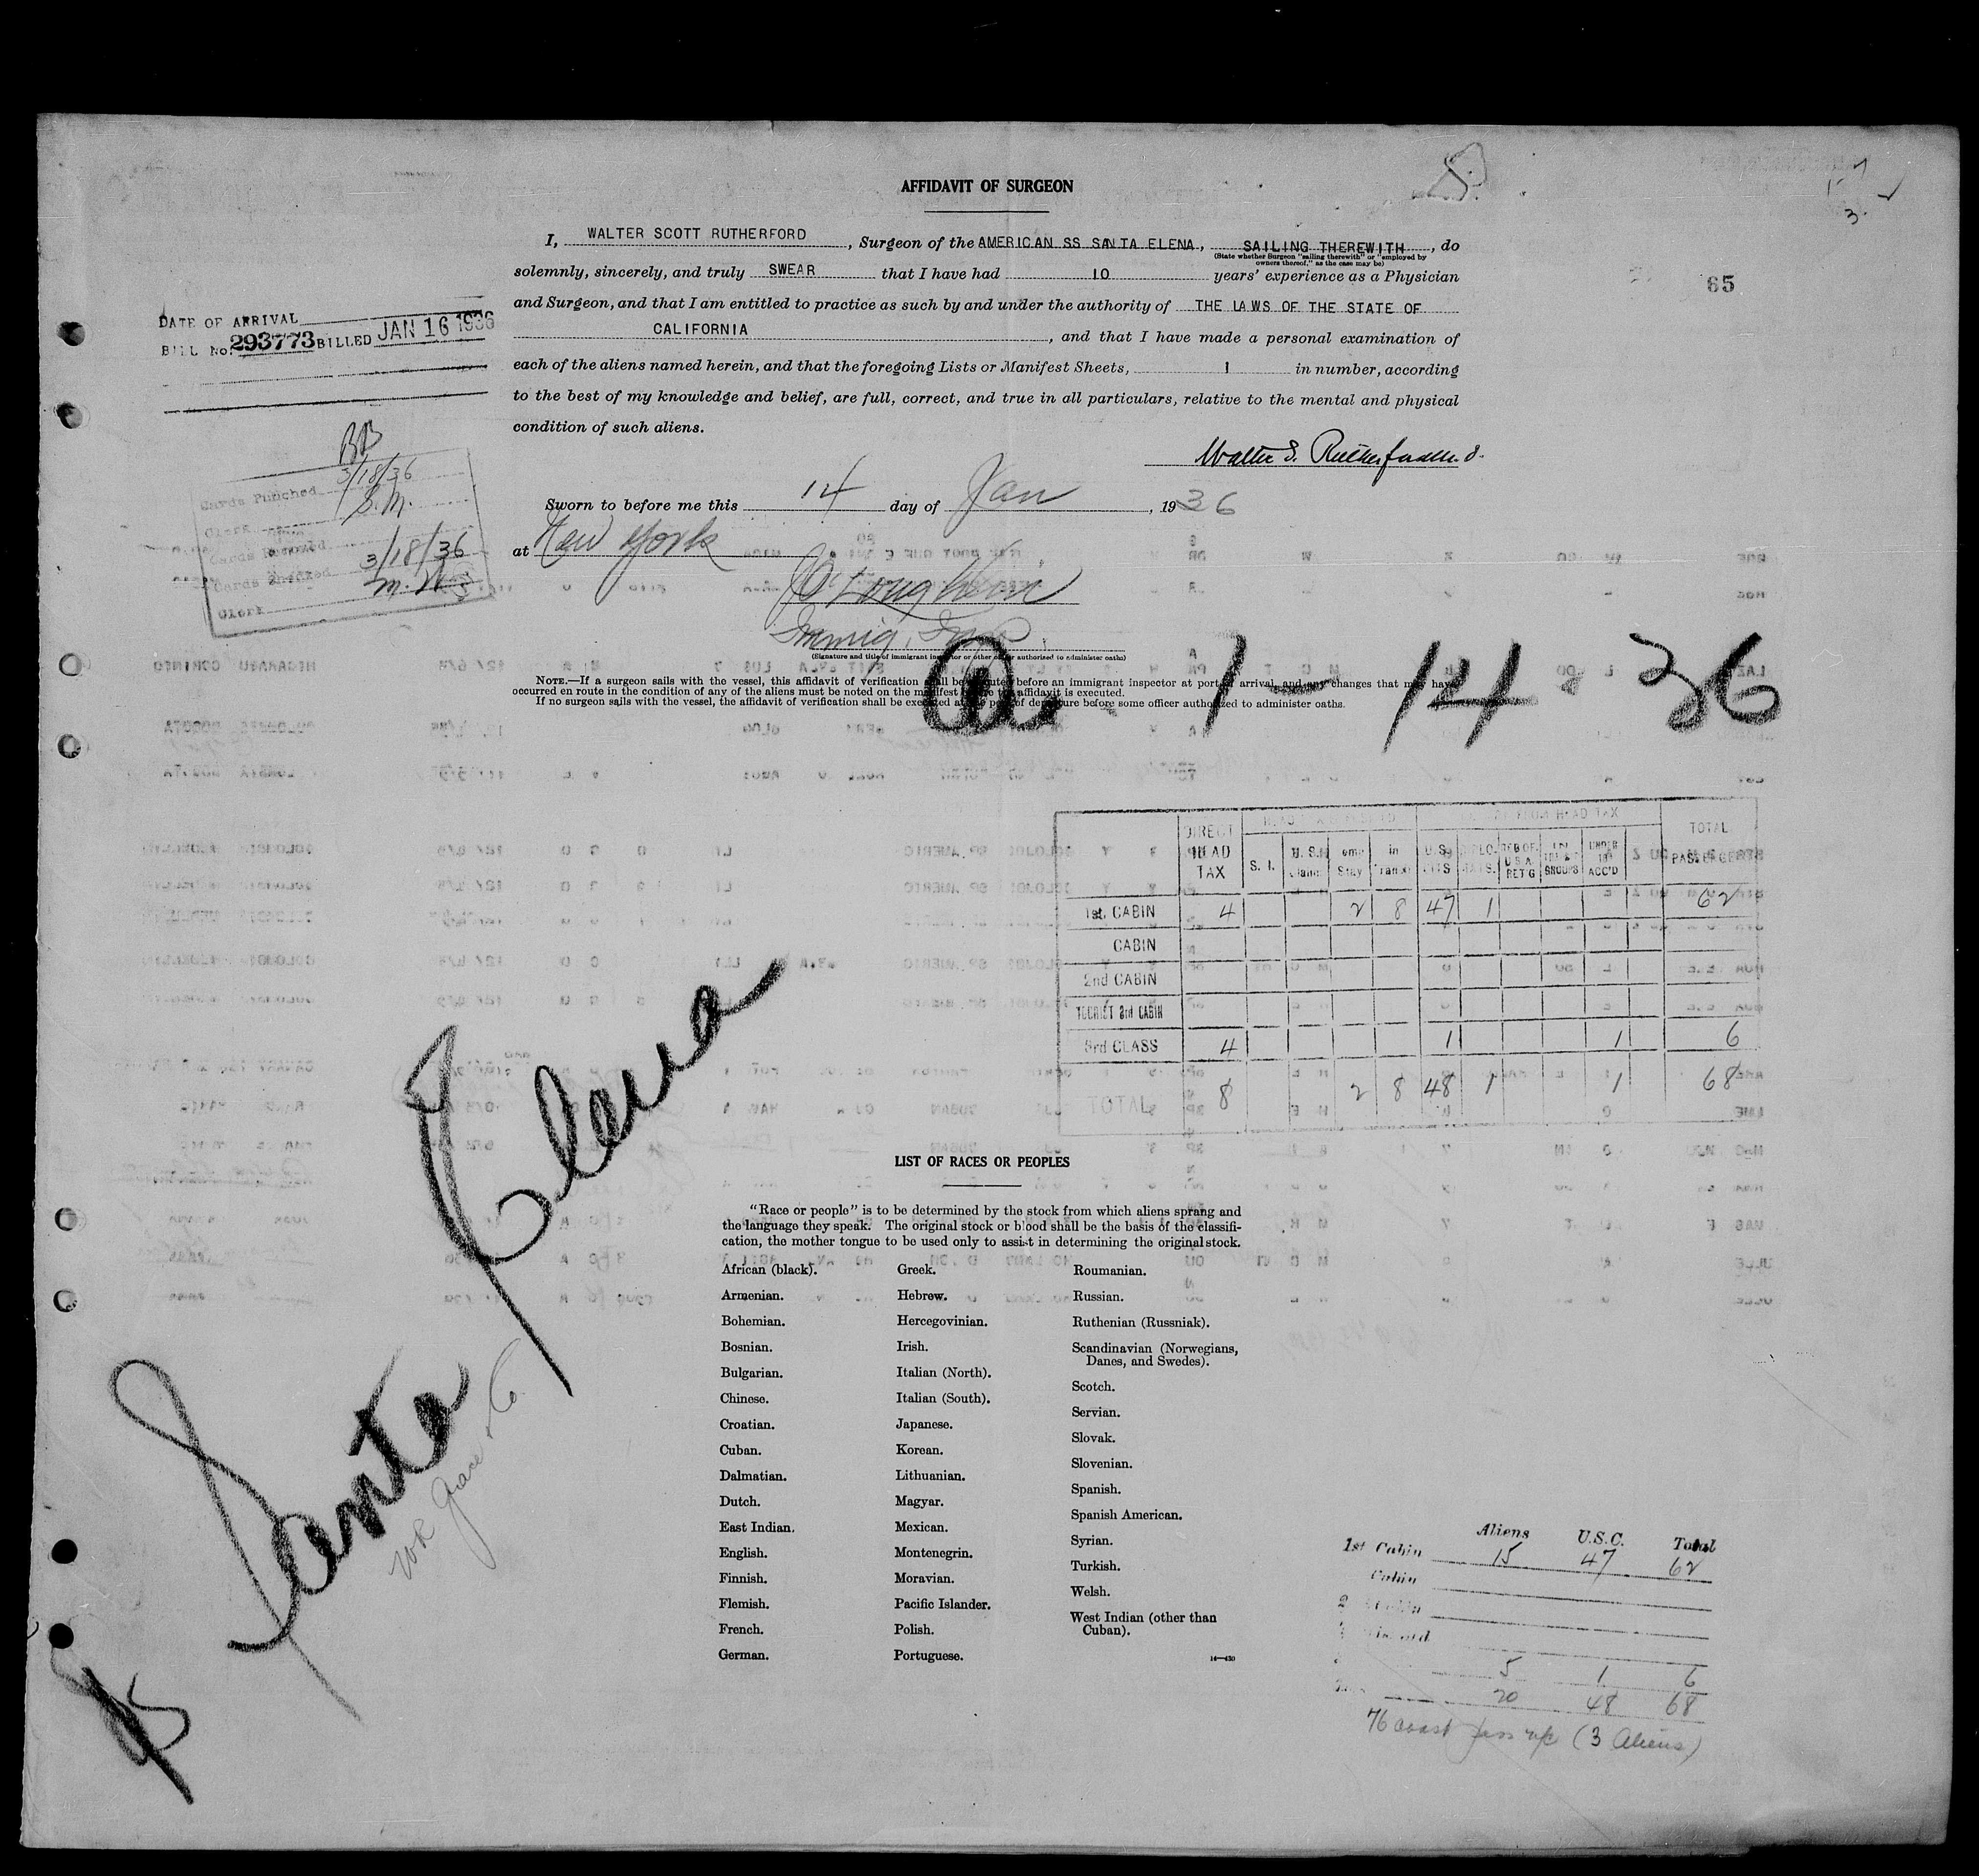 AFFIDAVIT OF SURGEON
65
I, WALTER SCOTT RUTHERFORD, Surgeon of the AMERICAN SS SANTA ELENA, SAILING THEREWITH, do
(State whether Surgeon "sailing therewith" or "employed by
owners thereof," as the case may be)
solemnly, sincerely, and truly SWEAR that I have had 10 years' experience as a Physician
and Surgeon, and that I am entitled to practice as such by and under the authority of THE LAWS OF THE STATE OF
CALIFORNIA, and that I have made a personal examination of
each of the aliens named herein, and that the foregoing Lists or Manifest Sheets, 1 in number, according
to the best of my knowledge and belief, are full, correct, and true in all particulars, relative to the mental and physical
condition of such aliens.
DATE OF ARRIVAL
BILL No. 293773 BILLED JAN 16 1936
BB
Cards Punched 3/18/36
Clerk S.M.
3/18/36
Clerk
Sworn to before me this 14 day of Jan, 1936
at New York
Immig. Insp
(Signature and title of immigrant inspector or other officer authorized to administer oaths)
NOTE.—If a surgeon sails with the vessel, this affidavit of verification shall be executed before an immigrant inspector at port of arrival, and any changes that may have
occurred en route in the condition of any of the aliens must be noted on the manifest before the affidavit is executed.
If no surgeon sails with the vessel, the affidavit of verification shall be executed at the port of departure before some officer authorized to administer oaths.
1-14-36
DIRECT HEAD TAX S. I. U.S. CITS TOTAL PASSENGERS
1st. CABIN 4 2 8 47 1 62
CABIN
2nd CABIN
TOURIST 3rd CABIN
3rd CLASS 4 1 1 6
TOTAL 8 2 8 48 1 1 68
Santa Elena
WR Grace & Co.
LIST OF RACES OR PEOPLES
"Race or people" is to be determined by the stock from which aliens sprang and
the language they speak. The original stock or blood shall be the basis of the classifi-
cation, the mother tongue to be used only to assist in determining the original stock.
African (black).
Armenian.
Bohemian.
Bosnian.
Bulgarian.
Chinese.
Croatian.
Cuban.
Dalmatian.
Dutch.
East Indian.
English.
Finnish.
Flemish.
French.
German.
Greek.
Hebrew.
Hercegovinian.
Irish.
Italian (North).
Italian (South).
Japanese.
Korean.
Lithuanian.
Magyar.
Mexican.
Montenegrin.
Moravian.
Pacific Islander.
Polish.
Portuguese.
Roumanian.
Russian.
Ruthenian (Russniak).
Scandinavian (Norwegians,
Danes, and Swedes).
Scotch.
Servian.
Slovak.
Slovenian.
Spanish.
Spanish American.
Syrian.
Turkish.
Welsh.
West Indian (other than
Cuban).
14—430
Aliens U.S.C. Total
1st Cabin 15 47 62
Cabin
5 1 6
20 48 68
76 coast (3 Aliens)